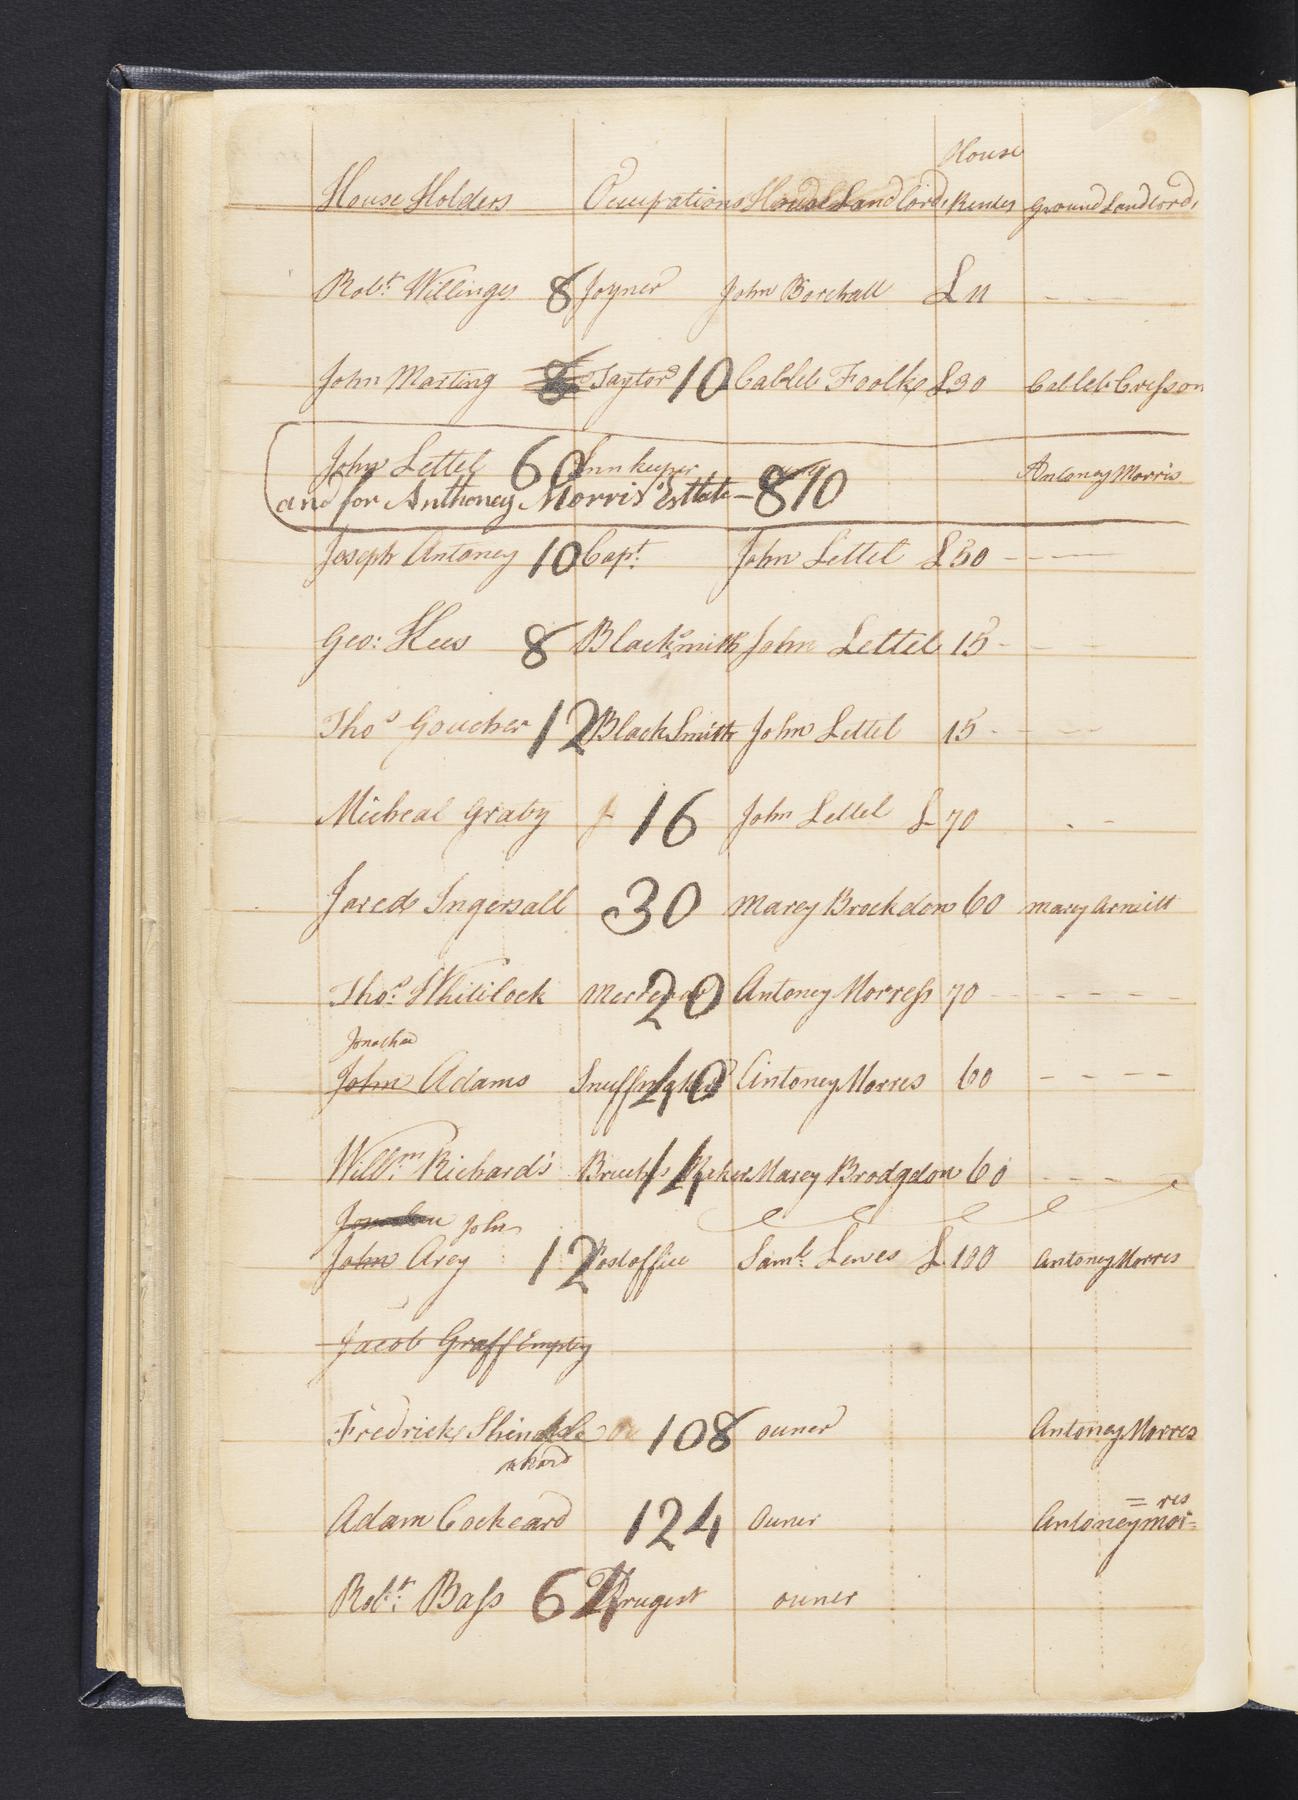 House
House Holders Ocupations House Landlords Rentes Ground Landlords
Robt. Willinges 8 Joyner John Borehall £ 11 - - -
John Marting 8 Taylor 10 Cableb Foolke £30 Cableb Cresson
John Lettel 60 Innkeeper Antoney Morris
and for Anthoney Morris's Esttate - 870
Joseph Antoney 10 Capt. John Lettel £50 - -
Geo: Hees 8 Blacksmith John Lettel 15 - - -
Thos Goucher 12 Black Smith John Lettel 15 - - -
Micheal Graby 16 John Lettel £ 70 - -
Jared Ingersall 30 Marey Brockdon 60 Marey Armitt
Thos. Whitlock 20 Antoney Morress 70 - - - -
John Adams Snuffmaker 40 Antoney Morres 60 - - - -
Willm. Richard's 14 Maker Marey Brodgdon 60 - - -
John
John Arey 12 Postoffice Saml. Lewes £ 100 Antoney Morres
Jacob Graff Empty
Fredrick 108 owner Antoney Morres
= res
Adam Cockeard 124 Owner Antoney mor=
Robt. Bass 64 Drugest owner